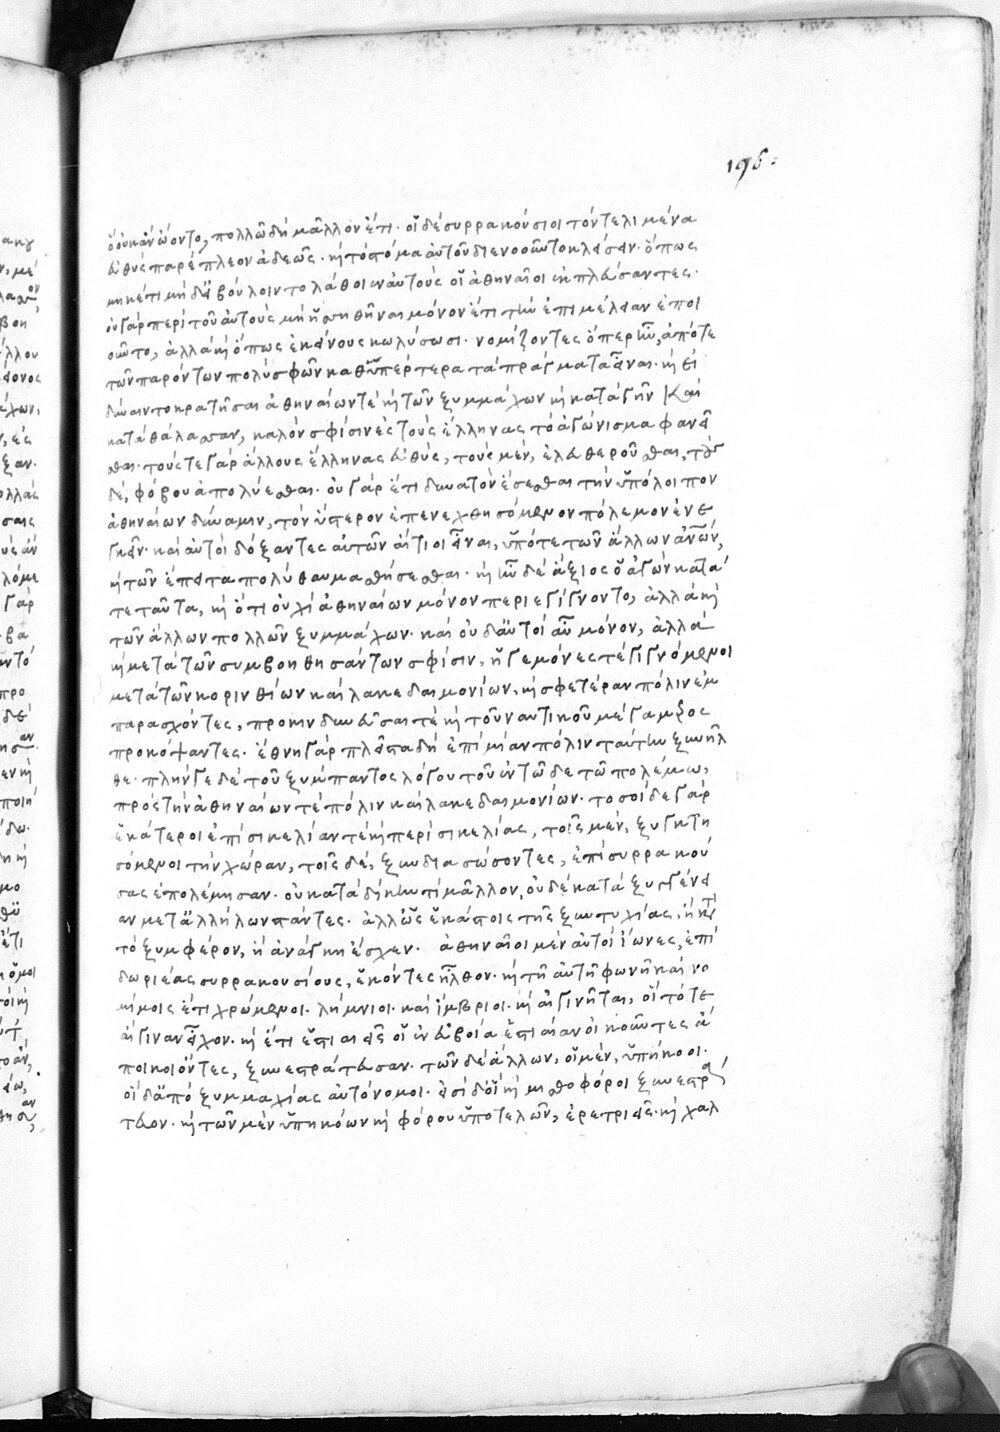 196:
ὃ οὐκ ἂν ᾤοντο, πολλῷ δὴ μᾶλλον ἔτι. οἱ δὲ συρρακούσιοι τόν τε λιμένα
εὐθὺς παρέπλεον ἀδεῶς. καὶ τὸ στόμα αὐτοῦ διενοοῦντο κλείσειν. ὅπως
μηκέτι μὴ δ' εἰ βούλοιντο λάθοιεν αὐτοὺς οἱ ἀθηναῖοι ἐκπλεύσαντες.
οὐ γὰρ περὶ τοῦ αὐτοὺς μὴ σωθῆναι μόνον ἔτι τὴν ἐπιμέλειαν ἐποι
οῦντο, ἀλλὰ καὶ ὅπως ἐκείνους κωλύσωσι. νομίζοντες ὅπερ ἦν, ἀπό τε
τῶν παρόντων πολὺ σφῶν καθυπέρτερα τὰ πράγματα εἶναι. καὶ εἰ
δύναιντο κρατῆσαι ἀθηναίων τὲ καὶ τῶν ξυμμάχων καὶ κατὰ γῆν καὶ
κατὰ θάλασσαν, καλὸν σφίσιν ἐς τοὺς ἕλληνας τὸ ἀγώνισμα φανεῖ
σθαι. τούς τε γὰρ ἄλλους ἕλληνας εὐθὺς, τοὺς μὲν, ἐλευθεροῦσθαι, τοὺς
δὲ, φόβου ἀπολύεσθαι. οὐ γὰρ ἔτι δυνατὸν ἔσεσθαι τὴν ὑπόλοιπον
ἀθηναίων δύναμιν, τὸν ὕστερον ἐπενεχθησόμενον πόλεμον ἐνε
γκεῖν. καὶ αὐτοὶ δόξαντες αὐτῶν αἴτιοι εἶναι, ὑπό τε τῶν ἄλλων ἀνων,
καὶ τῶν ἔπειτα πολὺ θαυμασθήσεσθαι. καὶ ἦν δὲ ἄξιος ὁ ἀγὼν κατά
τε ταῦτα, καὶ ὅτι οὐχὶ ἀθηναίων μόνον περιεγίγνοντο, ἀλλὰ καὶ
τῶν ἄλλων πολλῶν ξυμμάχων. καὶ οὐδ' αὐτοὶ αὖ μόνον, ἀλλὰ
καὶ μετὰ τῶν συμβοηθησάντων σφίσιν, ἡγεμόνες τὲ γιγνόμενοι
μετὰ τῶν κορινθίων καὶ λακεδαιμονίων, καὶ σφετέραν πόλιν ἐμ
παρασχόντες, προκινδυνεῦσαι τὲ καὶ τοῦ ναυτικοῦ μέγα μέρος
προκόψαντες. ἔθνη γὰρ πλεῖστα δὴ ἐπὶ μίαν πόλιν ταύτην ξυνῆλ
θε. πλήν γε δὲ τοῦ ξύμπαντος λόγου τοῦ ἐν τῷδε τῷ πολέμω,
πρὸς τὴν ἀθηναίων τὲ πόλιν καὶ λακεδαιμονίων. τοσοίδε γὰρ
ἑκάτεροι ἐπὶ σικελίαν τὲ καὶ περὶ σικελίας, τοῖς μὲν, ξυγκτη
σόμενοι τὴν χώραν, τοῖς δὲ, ξυνδιασώσοντες, ἐπὶ συρρακού
σας ἐπολέμησαν. οὐ κατὰ δίκην τί μᾶλλον, οὐδὲ κατὰ ξυγγένει
αν μετ' ἀλλήλων στάντες. ἀλλ' ὡς ἕκαστοις τῆς ξυντυχίας, ἢ κατὰ
τὸ ξυμφέρον, ἢ ἀνάγκη ἔσχεν. ἀθηναῖοι μὲν αὐτοὶ ἴωνες, ἐπὶ
δωριέας συρρακουσίους, ἑκόντες ἦλθον. καὶ τῇ αὐτῇ φωνῇ καὶ νο
μίμοις ἔτι χρώμενοι. λήμνιοι. καὶ ἴμβριοι. καὶ αἰγινῆται, οἳ τότε
αἴγιναν εἶχον. καὶ ἔτι ἑστιαιεῖς οἱ ἐν εὐβοία ἑστίαιαν οἰκοῦντες ἄ
ποικοι ὄντες, ξυνεστράτευσαν. τῶν δὲ ἄλλων, οἱ μὲν, ὑπήκοοι.
οἱ δ' ἀπὸ ξυμμαχίας αὐτόνομοι. εἰσὶ δ' οἳ καὶ μισθοφόροι ξυνεστρά
τευον. καὶ τῶν μὲν ὑπηκόων καὶ φόρου ὑποτελῶν, ἐρετριεῖς. καὶ χαλ